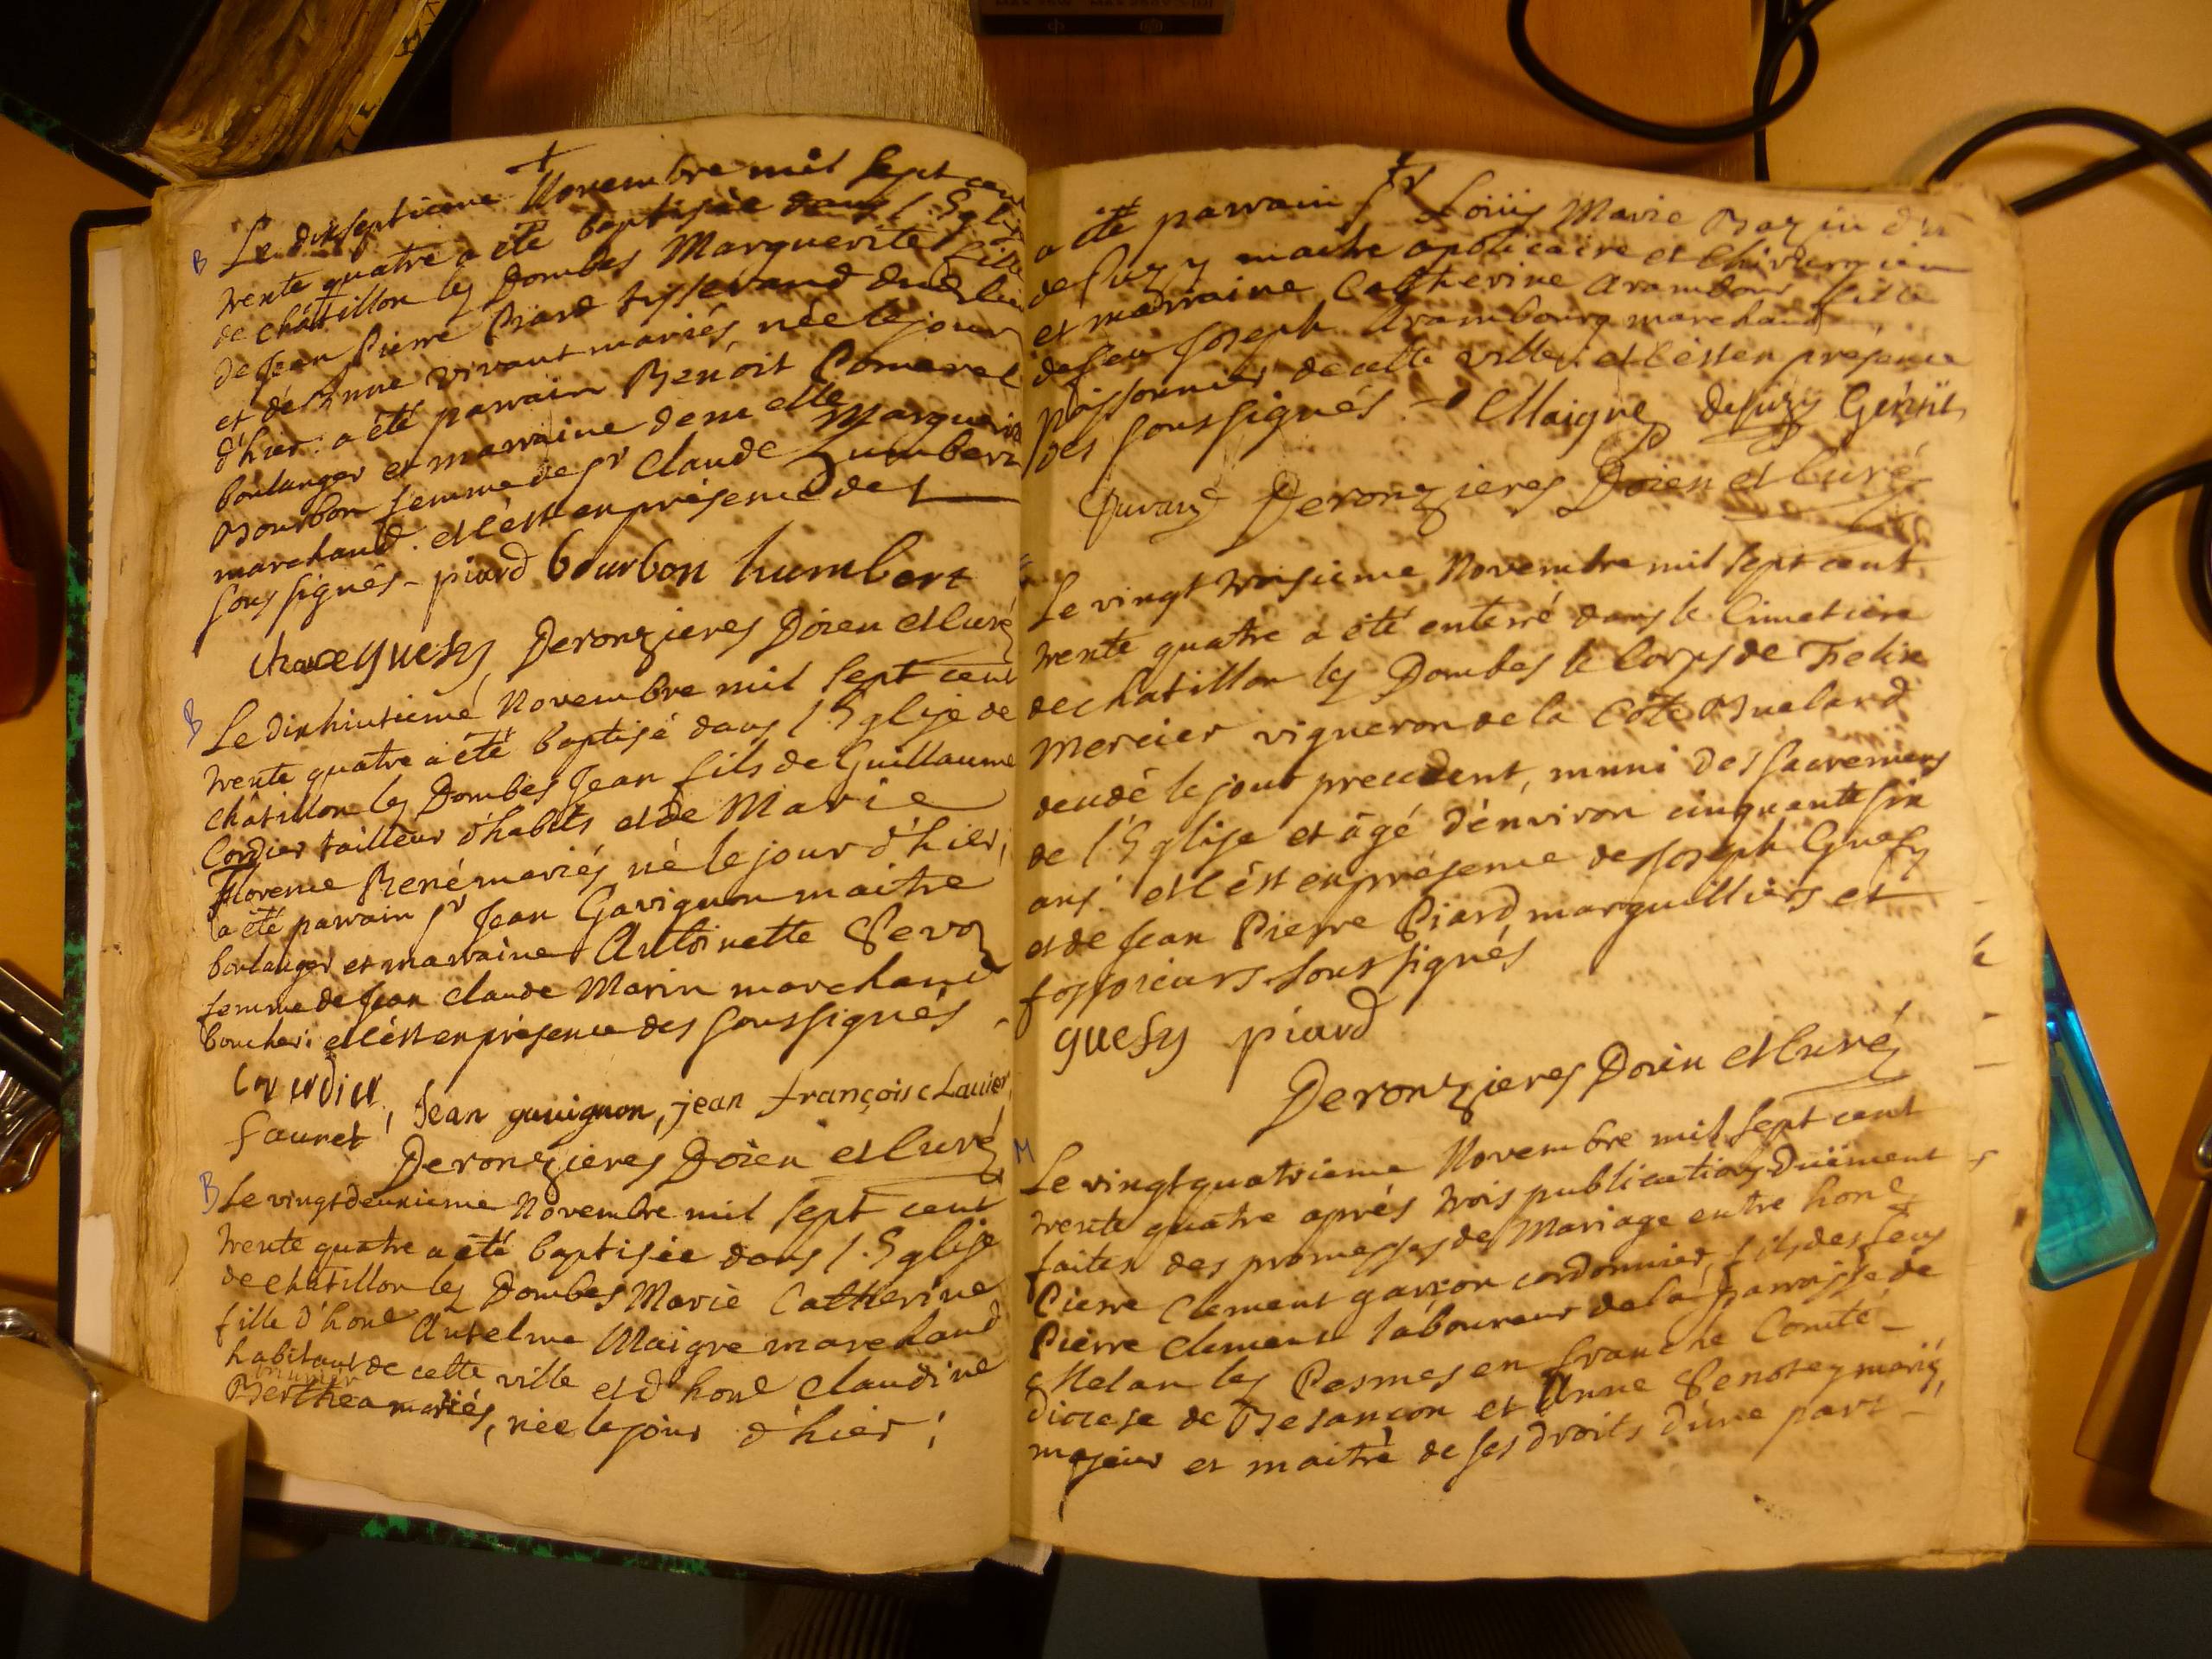 B
Le dixseptieme Novembre mil sept cent
trente quatre a été baptisée dans l'Eglise
de châtillon les Dombes Marguerite fille
de Jean Pierre Piard tisserand dudit lieu
et de Anne vivant mariés, née le jour
d'hier: a été parrain Benoit Pomerel
boulanger et marraine demelle Marguerite
Bourbon femme de sr Claude humbert
marchand. et c'est en présence des
soussignés - piard bourbon humbert
guesy Deronzieres Doïen et Curé
B
Le dixhuitieme Novembre mil sept cent
trente quatre a été baptisé dans l'Eglise de
châtillon les Dombes Jean fils de Guillaume
Cordier tailleur d'habits et de Marie
Florence René mariés né le jour d'hier,
a été parrain sr Jean Gavignon maitre
boulanger et marraine Antoinette
femme de Jean claude Marin marchand
boucher: et c'est en présence des soussignés
Jean gauignon, jean françois clauier
fauret
Deronzieres Doïen et Curé
B Le vingtdeuxieme Novembre mil sept cent
trente quatre a été baptisée dans l'Eglise
de chatillon les Dombes Marie Catherine
fille d'hone Anselme Maigre marchand
habitant de cette ville et d'hone claudine
Berthea mariés, née le jour d'hier;
a été parrain sr Loüis Marie Bazin
de Suzy maitre apoticaire et chirurgien
et marraine Catherine Arambour fille
de feu Joseph Arambourg marchand
poissonnier de cette ville. et c'est en presence
des soussignés. Maigre desuzy
Durand Deronzieres Doïen et Curé
Le vingt troisieme Novembre mil sept cent
trente quatre a été enterré dans le Cimetiere
de chatillon les Dombes le Corps de Felix
Mercier vigneron de la Côte Buelard
decedé le jour precedent, muni des sacremens
de l'Eglise et âgé d'environ cinquante six
ans. et c'est en présence de Joseph Guesy
et de Jean Pierre Piard, marguilliers et
fossoieurs soussignés
guesy piard
Deronzieres Doïen et Curé
M
Le vingtquatrieme Novembre mil sept cent
trente quatre aprés trois publications duëment
faites des promesses de Mariage entre hone
Pierre Clement garçon cordonnier, fils des feus
Pierre Clement laboureur de la parroisse de
les Pesmes en franche Comté
diocese de Besançon et Anne mariés,
majeur et maitre de ses droits d'une part